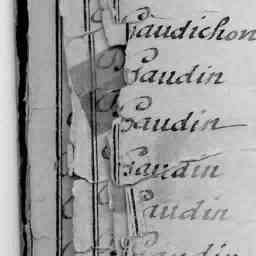 Gaudichon
Gaudin
Gaudin
Gaudin
Gaudin
Gaudin